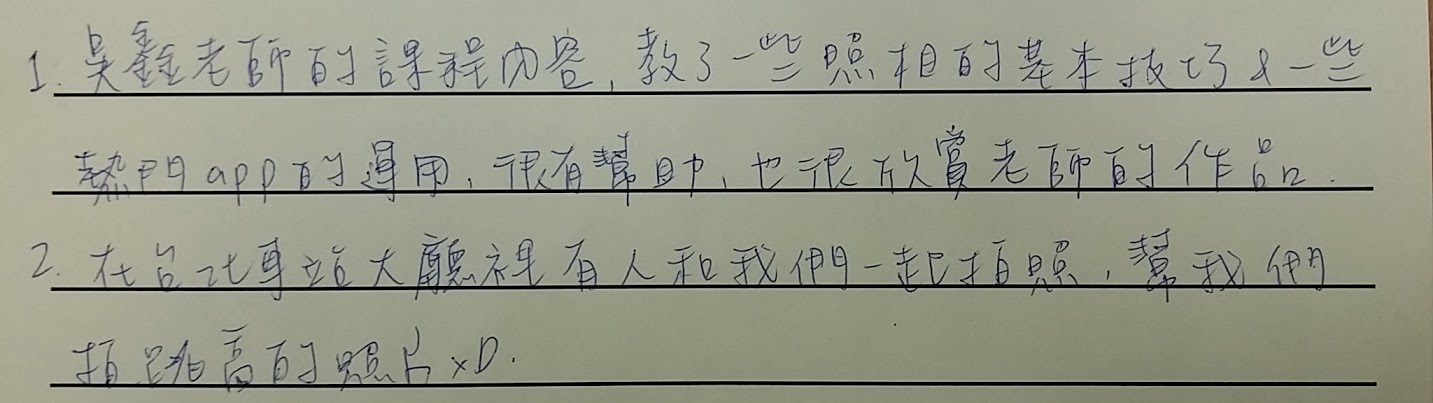 1. 吳鑫老師的課程內容, 教了一些照相的基本技巧 & 一些
熱門 app 的運用, 很有幫助, 也很欣賞老師的作品.
2. 在台北車站大廳裡有人和我們一起拍照, 幫我們
拍跳高的照片 xD.